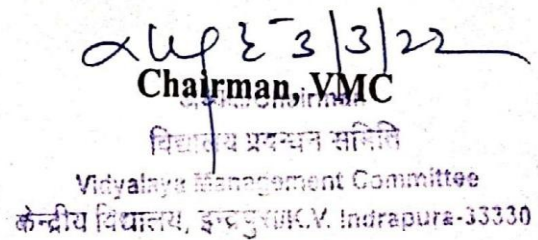 3/3/22
Chairman, VMC
Chairman
विद्यालय प्रबन्धन समिति
Vidyalaya Management Committee
केन्द्रीय विद्यालय, इन्द्रपुरा/K.V. Indrapura-33330